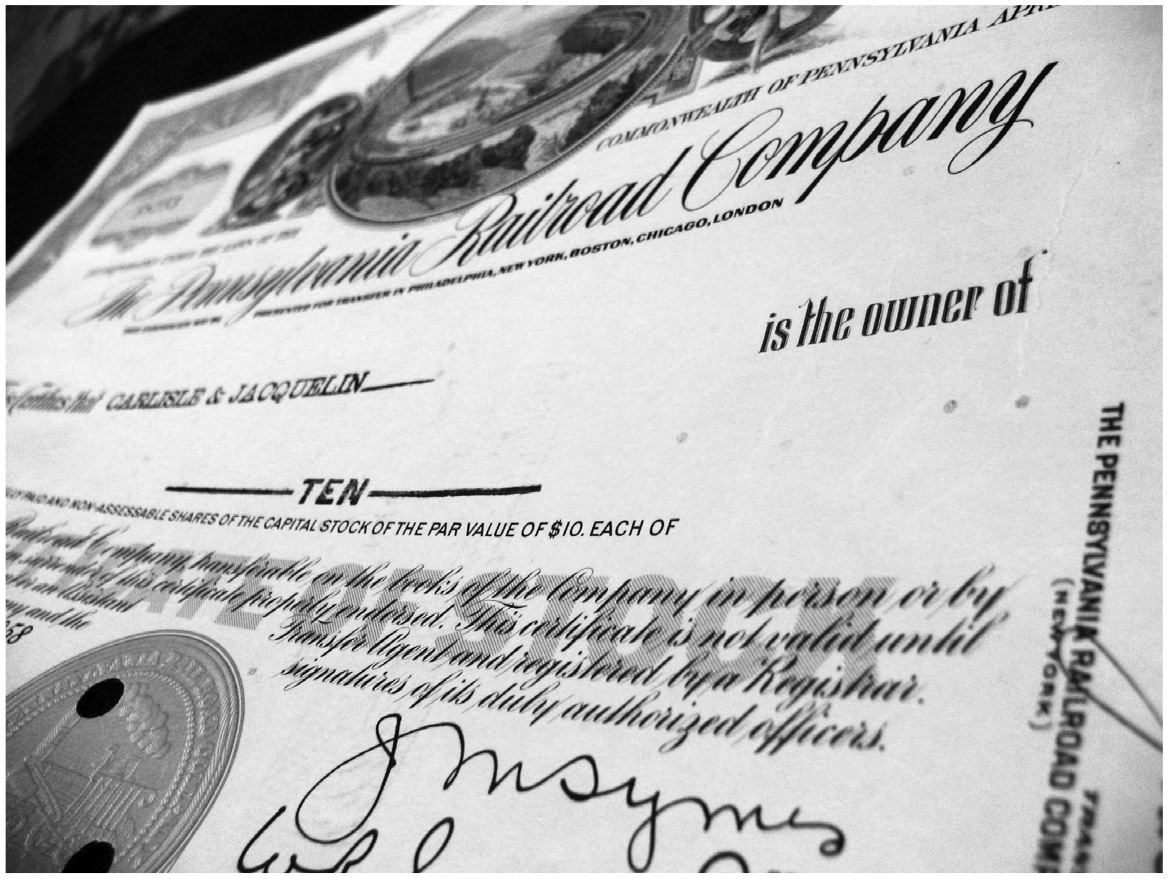 COMMONWEALTH OF PENNSYLVANIA
The Pennsylvania Railroad Company
PRESENTED FOR TRANSFER IN PHILADELPHIA, NEW YORK, BOSTON, CHICAGO, LONDON
is the owner of
CARLISLE & JACQUELIN
TEN
PAID AND NON-ASSESSABLE SHARES OF THE CAPITAL STOCK OF THE PAR VALUE OF $10. EACH OF
Railroad Company, transferable on the books of the Company in person or by
of this certificate properly endorsed. This certificate is not valid until
Transfer Agent and registered by a Registrar.
and the
signatures of its duly authorized officers.
STOCK
J M Symes
THE PENNSYLVANIA RAILROAD COMP
(NEW YORK)